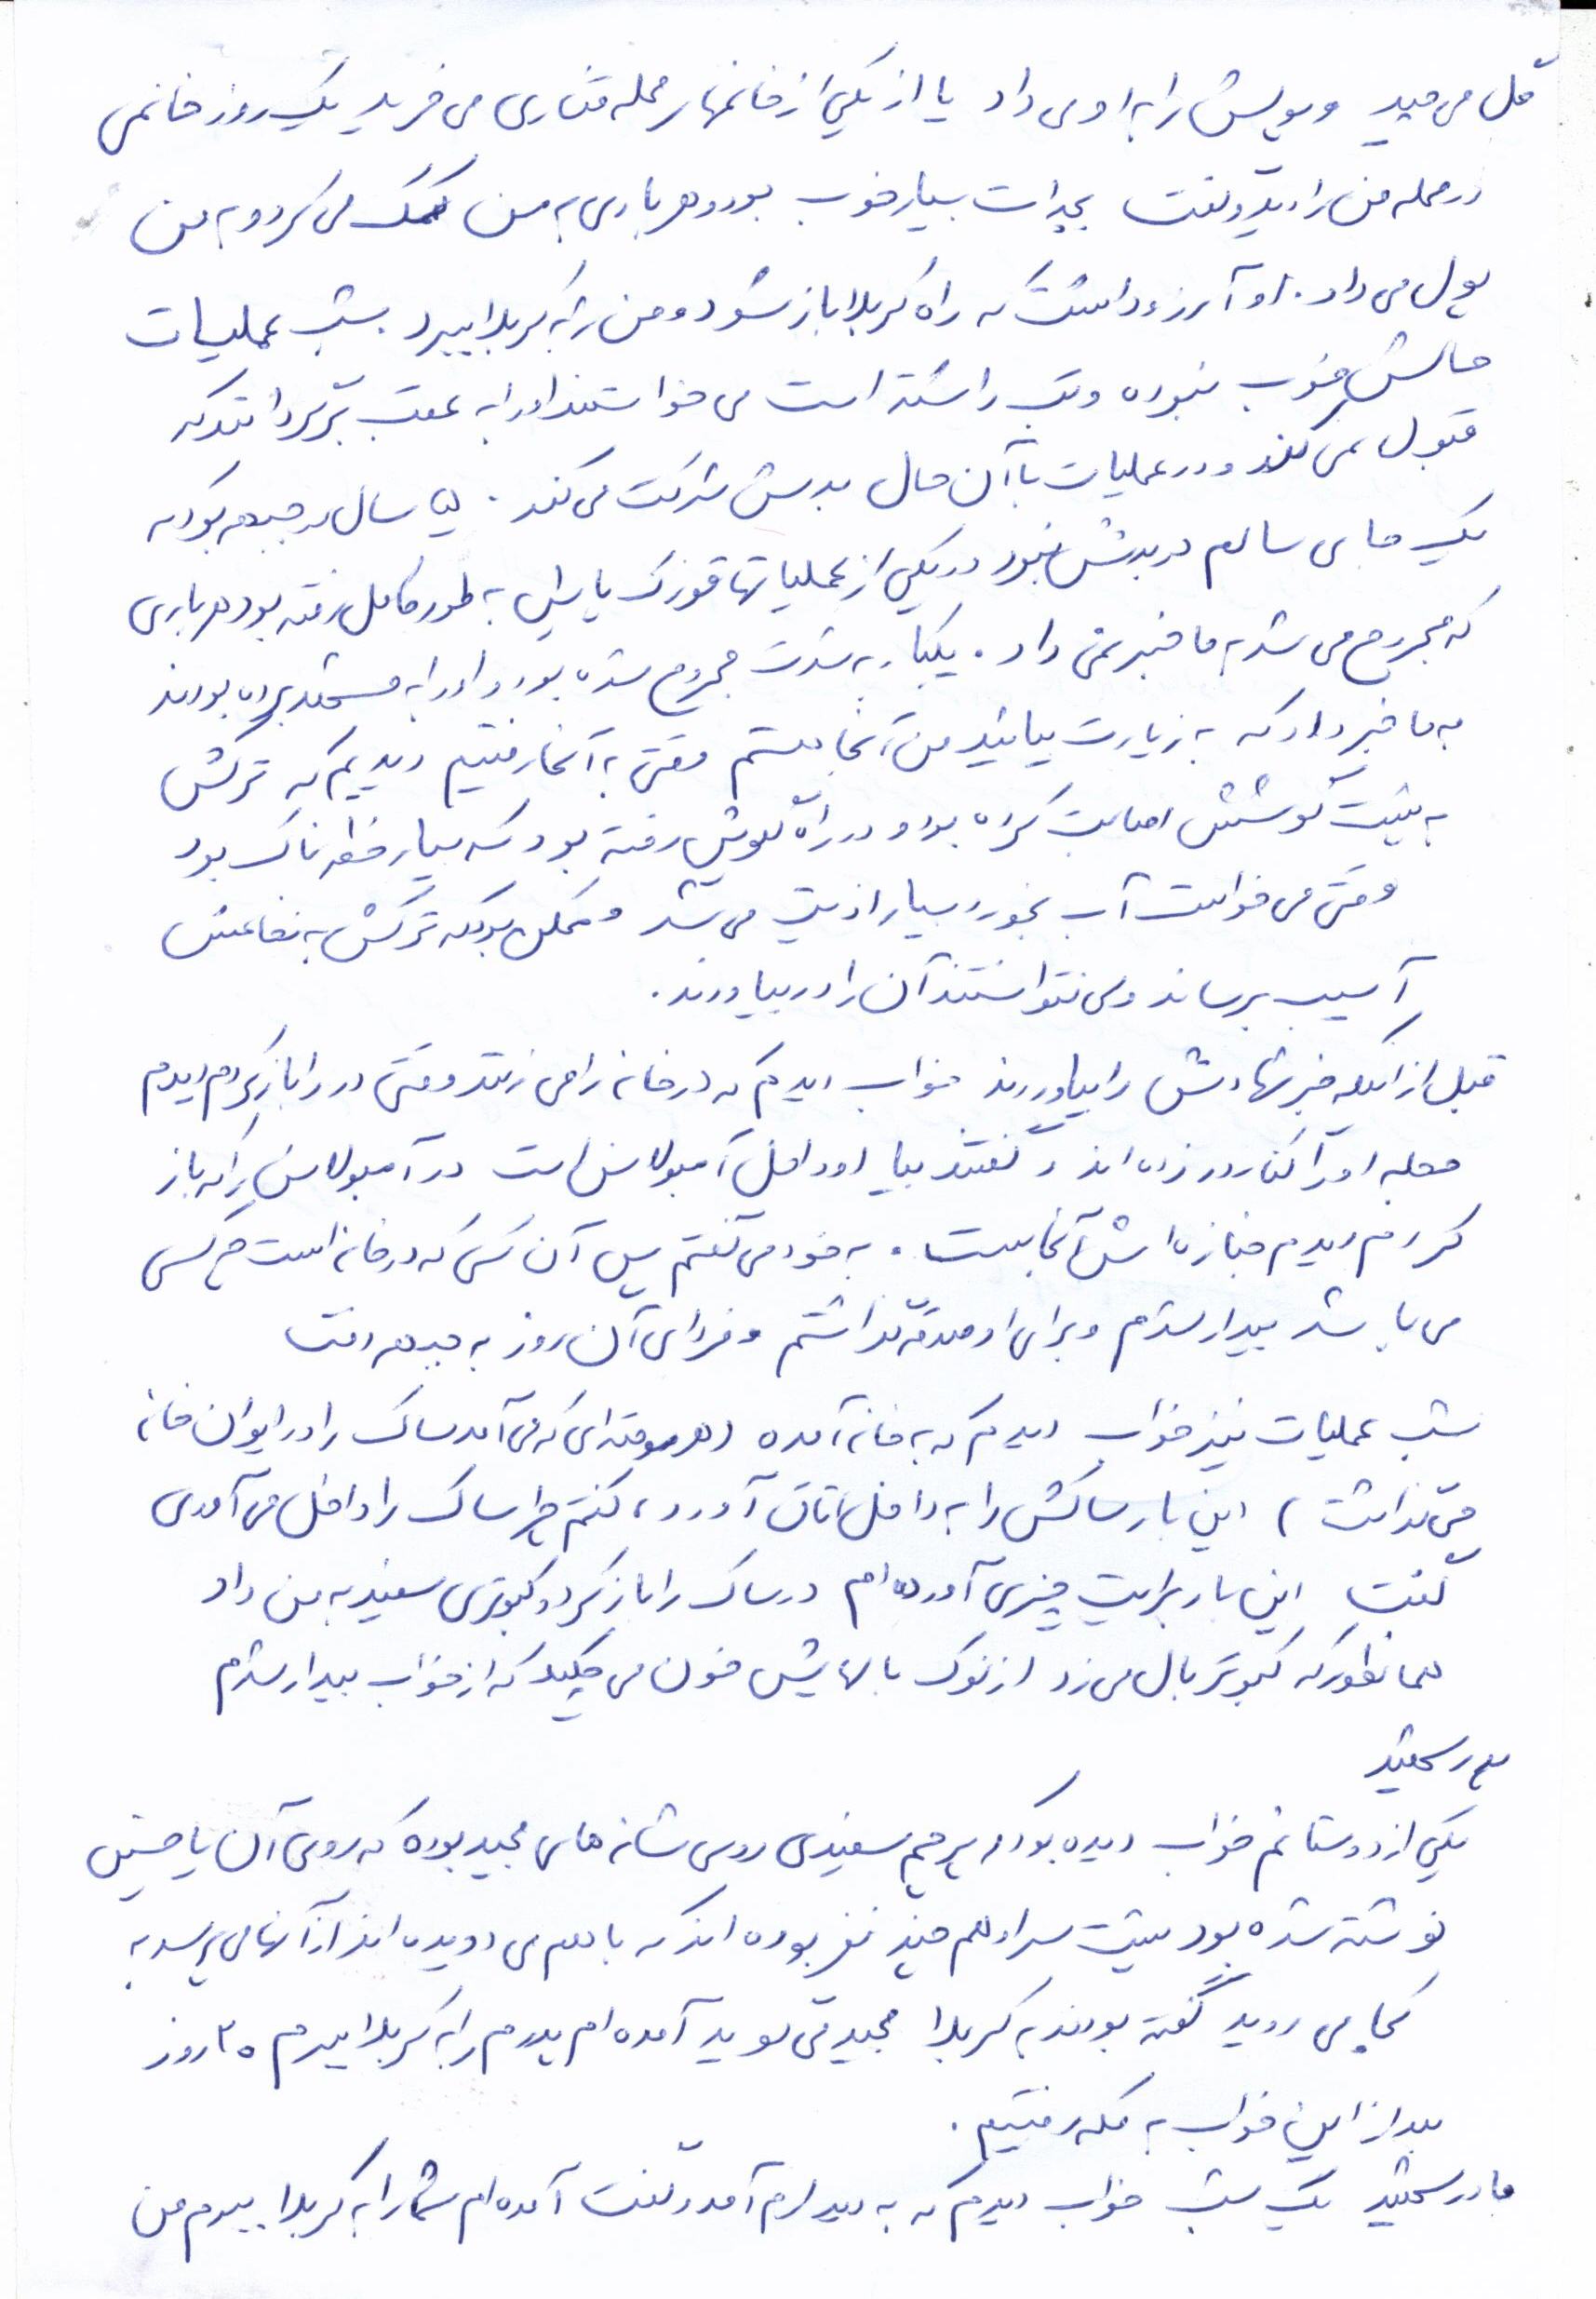 گل می چید و پولش را به او می داد یا از یکی از خانمهای محله مقداری می خرید یک روز خانمی
در محله من را دید و گفت بچه ات بسیار خوب بود و هر باری به من کمک می کرد و به من
پول می داد. او آرزو داشت که راه کربلا باز شود و من را به کربلا ببرد. شب عملیات
حالش خوب نبوده و تب داشته است می خواستند او را به عقب برگردانند که
قبول نمی کند و در عملیات با آن حال بدش شرکت می کند. ۵ سال در جبهه بود که
یک جای سالم در بدنش نبود در یکی از عملیاتها قوزک پایش به طور کامل رفته بود هر باری
که مجروح می شد به ما خبر نمی داد. یکبار به شدت مجروح شده بود و او را به مشهد برده بودند
به ما خبر داد که به زیارت بیائید من آنجا هستم وقتی به آنجا رفتیم دیدیم که ترکش
به پشت گوشش اصابت کرده بود و در راه گلویش رفته بود که بسیار خطرناک بود
وقتی می خواست آب بخورد بسیار اذیت می شد و ممکن بود که ترکش به نخاعش
آسیب برساند ولی نتوانستند آن را در بیاورند.
قبل از اینکه خبر شهادتش را بیاورند خواب دیدم که در خانه را می زنند وقتی در را باز کردم دیدم
حجله او را کنار در زده اند و گفتند بیا او داخل آمبولانس است در آمبولانس را که باز
کردم دیدم جنازه اش آنجاست. به خود می گفتم پس آن کسی که در خانه است چه کسی
می باشد بیدار شدم و برای او صدقه گذاشتم و فردای آن روز به جبهه رفت
شب عملیات نیز خواب دیدم که به خانه آمده (هر موقعه ای که می آمد ساک را در ایوان خانه
می گذاشت) این بار ساکش را به داخل اتاق آورد، گفتم چرا ساک را داخل می آوری
گفت این بار برایت چیزی آورده ام در ساک را باز کرد و کبوتری سفید به من داد
همانطور که کبوتر بال می زد از نوک بالهایش خون می چکید که از خواب بیدار شدم
پدر شهید
یکی از دوستانم خواب دیده بود که پرچم سفیدی روی شانه های مجید بوده که روی آن یا حسین
نوشته شده بود پشت سر او هم چند نفر بوده اند که با هم می دویده اند از آنها می پرسد به
کجا می روید گفته بودند به کربلا مجید می گوید آمده ام پدرم را به کربلا ببرم ۲۰ روز
بعد از این خواب به مکه رفتیم.
مادر شهید یک شب خواب دیدم که به دیدارم آمد و گفت آمده ام شما را به کربلا ببرم من